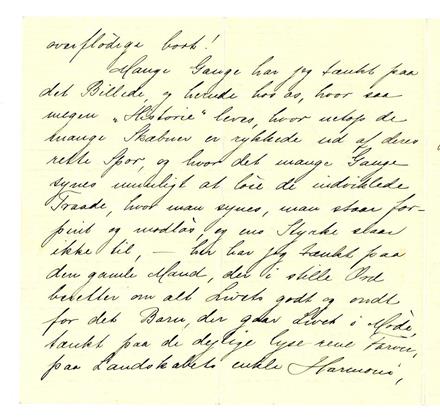 overflödige bort!
Mange Gange har jeg tænkt paa
det Billede, og herude hos os, hvor saa
megen „Historie“ leves, hvor netop de
mange Skæbner er rykkede ud af deres
rette Spor, og hvor det mange Gange
synes umuligt at löse de indviklede
Traade, hvor man synes, man staar for-
pint og modlös og ens Styrke slaar
ikke til, — her har jeg tænkt paa
den gamle Mand, der i stille Ord
beretter om alt Livets godt og ondt
for det Barn, der gaar Livet i Möde,
tænkt paa de dejlige lyse rene Farver,
paa Landskabets enkle Harmoni,